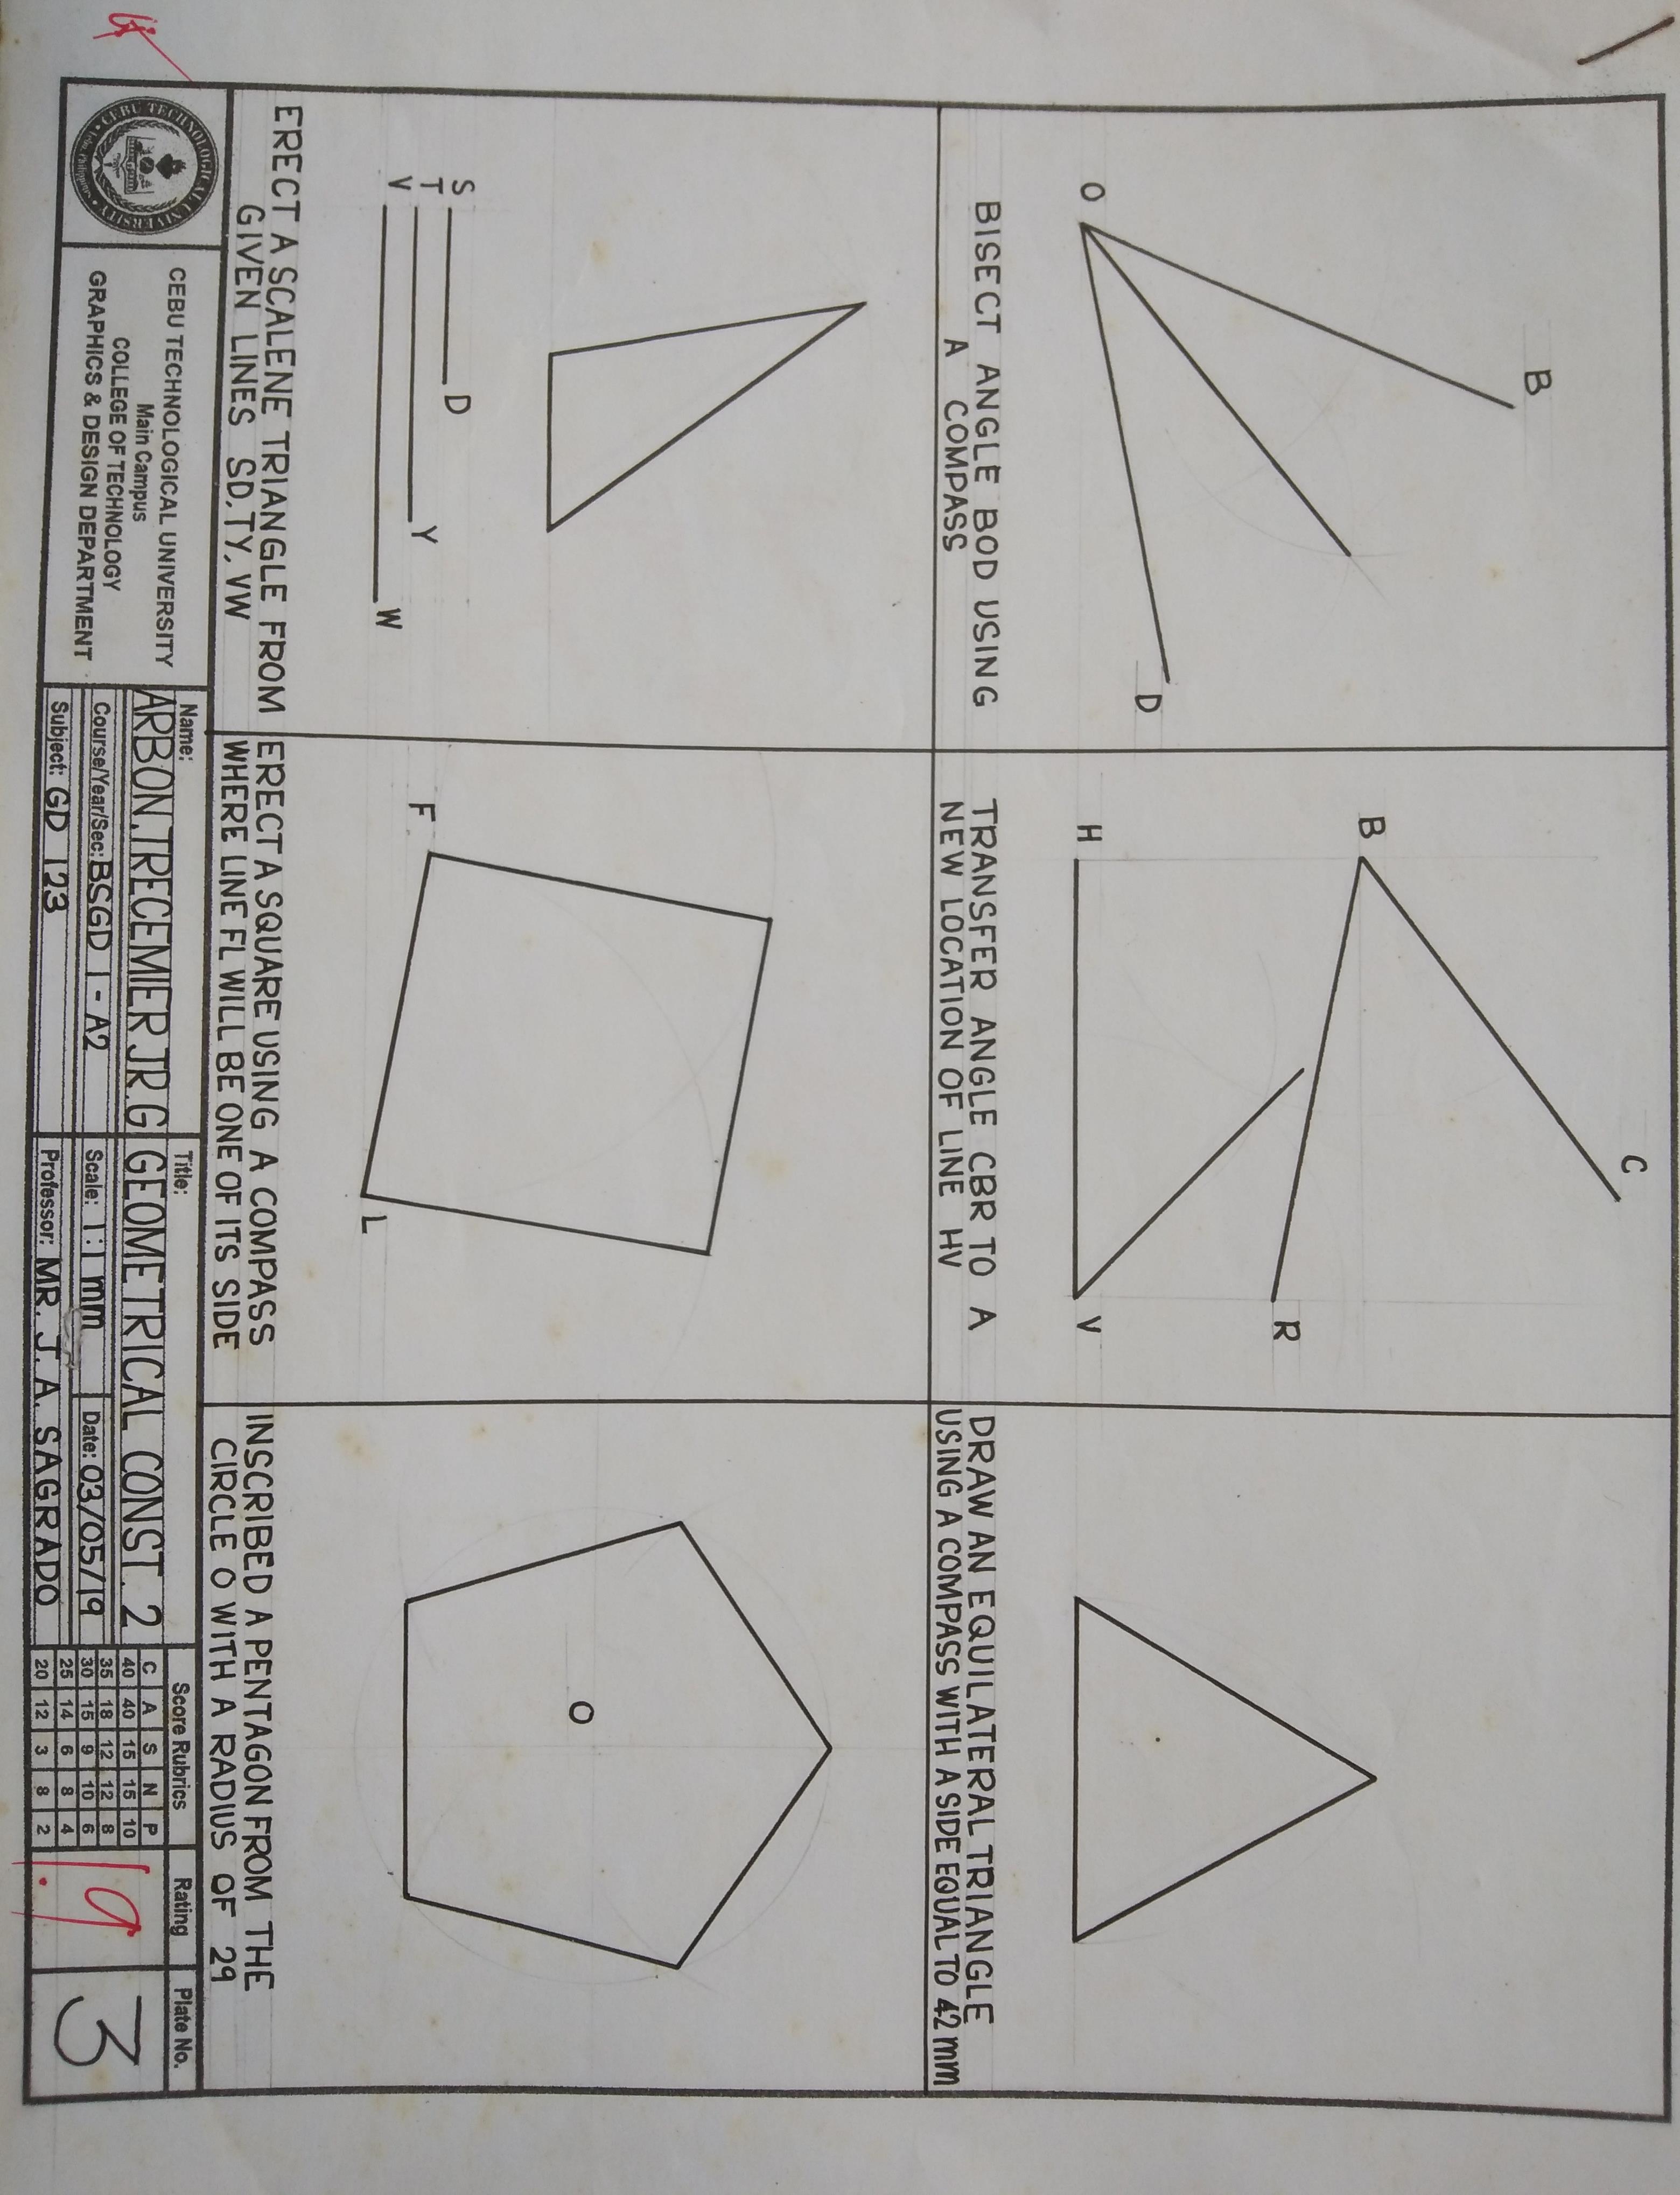 B
O
D
BISECT ANGLE BOD USING
A COMPASS
C
B
R
H
V
TRANSFER ANGLE CBR TO A
NEW LOCATION OF LINE HV
DRAW AN EQUILATERAL TRIANGLE
USING A COMPASS WITH A SIDE EQUAL TO 42mm
S D
T Y
V W
ERECT A SCALENE TRIANGLE FROM
GIVEN LINES SD, TY, VW
F
L
ERECT A SQUARE USING A COMPASS
WHERE LINE FL WILL BE ONE OF ITS SIDE
O
INSCRIBED A PENTAGON FROM THE
CIRCLE O WITH A RADIUS OF 29
CEBU TECHNOLOGICAL UNIVERSITY
CEBU TECHNOLOGICAL UNIVERSITY
Main Campus
COLLEGE OF TECHNOLOGY
GRAPHICS & DESIGN DEPARTMENT
Name:
ARBON, TRECEMIER JR. G
Course/Year/Sec: BSGD 1-A2
Subject: GD 123
Title:
GEOMETRICAL CONST. 2
Scale: 1:1 mm
Date: 03/05/19
Professor: MR. J. A. SAGRADO
Score Rubrics
C A S N P
40 40 15 15 10
35 18 12 12 8
30 15 9 10 6
25 14 6 8 4
20 12 3 8 2
Rating
1.9
Plate No.
3